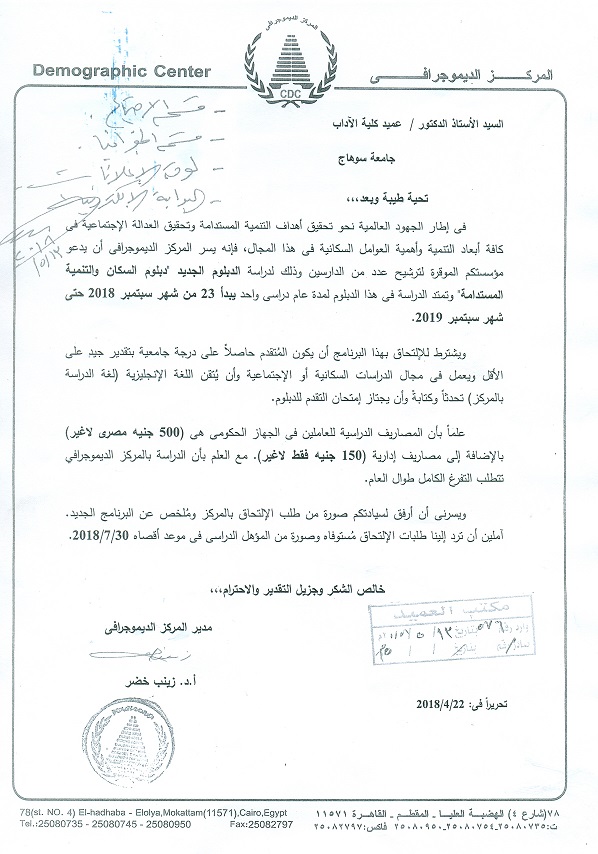 المركز الديموجرافى
Demographic Center
المركز الديموجرافى
CDC
السيد الأستاذ الدكتور / عميد كلية الآداب
جامعة سوهاج
تحية طيبة وبعد،،،
- قسم الاجتماع
- قسم الجغرافيا
- لوحة الإعلانات
- البوابة الإلكترونية
فى إطار الجهود العالمية نحو تحقيق أهداف التنمية المستدامة وتحقيق العدالة الإجتماعية فى
كافة أبعاد التنمية وأهمية العوامل السكانية فى هذا المجال، فإنه يسر المركز الديموجرافى أن يدعو
مؤسستكم الموقرة لترشيح عدد من الدارسين وذلك لدراسة الدبلوم الجديد "دبلوم السكان والتنمية
المستدامة" وتمتد الدراسة فى هذا الدبلوم لمدة عام دراسى واحد يبدأ 23 من شهر سبتمبر 2018 حتى
شهر سبتمبر 2019.
ويشترط للإلتحاق بهذا البرنامج أن يكون المُتقدم حاصلاً على درجة جامعية بتقدير جيدٍ على
الأقل ويعمل فى مجال الدراسات السكانية أو الإجتماعية وأن يُتقن اللغة الإنجليزية (لغة الدراسة
بالمركز) تحدثاً وكتابةً وأن يجتاز إمتحان التقدم للدبلوم.
علماً بأن المصاريف الدراسية للعاملين فى الجهاز الحكومى هى (500 جنيه مصرى لاغير)
بالإضافة إلى مصاريف إدارية (150 جنيه فقط لاغير). مع العلم بأن الدراسة بالمركز الديموجرافي
تتطلب التفرغ الكامل طوال العام.
ويسرنى أن أرفق لسيادتكم صورة من طلب الإلتحاق بالمركز ومُلخص عن البرنامج الجديد.
آملين أن ترد إلينا طلبات الإلتحاق مُستوفاه وصورة من المؤهل الدراسى فى موعد أقصاه 2018/7/30.
خالص الشكر وجزيل التقدير والاحترام،،،
مكتب العميد
مدير المركز الديموجرافى
أ.د. زينب خضر
تحريراً فى: 2018/4/22
78(st. NO. 4) El-hadhaba - Elolya,Mokattam(11571),Cairo,Egypt
Tel.:25080735 - 25080745 - 25080950 Fax:25082797
٧٨(شارع ٤) الهضبة العليا - المقطم - القاهرة ١١٥٧١
ت:٢٥٠٨٠٧٣٥-٢٥٠٨٠٧٥٤-٢٥٠٨٠٩٥٠ فاكس:٢٥٠٨٢٧٩٧